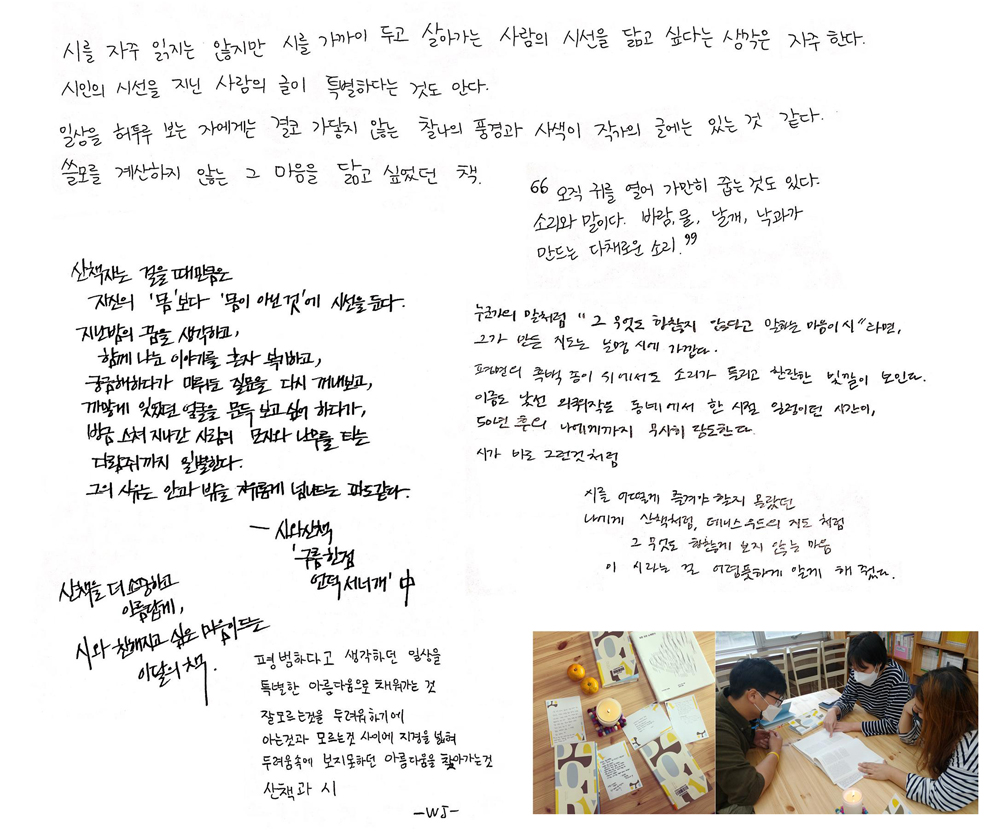 시를 자주 읽지는 않지만 시를 가까이 두고 살아가는 사람의 시선을 닮고 싶다는 생각은 자주 한다.
시인의 시선을 지닌 사람의 글이 특별하다는 것도 안다.
일상을 허투루 보는 자에게는 결코 가닿지 않는 찰나의 풍경과 사색이 작가의 글에는 있는 것 같다.
쓸모를 계산하지 않는 그 마음을 닮고 싶었던 책.
“오직 귀를 열어 가만히 줍는 것도 있다.
소리와 말이다. 바람, 물, 날개, 낙과가
만드는 다채로운 소리.”
산책자는 걸을 때만큼은
자신의 '몸'보다 '몸이 아닌 것'에 시선을 둔다.
지난밤의 꿈을 생각하고,
함께 나눈 이야기를 혼자 복기하고,
궁금해하다가 미뤄둔 질문을 다시 꺼내보고,
까맣게 잊었던 얼굴을 문득 보고 싶어 하다가,
방금 스쳐 지나간 사람의 모자와 나무를 타는
다람쥐까지 일별한다.
그의 사유는 안과 밖을 자유롭게 넘나드는 파도같다.
— 시와산책
'구름 한점
언덕 서너개' 中
산책을 더 소중하고
아름답게,
시와 친해지고 싶은 마음이드는
이달의 책.
누군가의 말처럼 “그 무엇도 하찮지 않다고 말하는 마음이 시”라면,
그가 만든 지도는 분명 시에 가깝다.
평면의 흑백 종이 위에서도 소리가 들리고 찬란한 빛깔이 보인다.
이름도 낯선 외퀴작은 동네에서 한 시절 일렁이던 시간이,
50년 후의 나에게까지 무사히 당도한다.
시가 바로 그런것처럼
시를 어떻게 즐겨야 할지 몰랐던
나에게 산책처럼, 데니스 우드의 지도 처럼
그 무엇도 하찮게 보지 않는 마음
이 시라는 걸 어렴풋하게 알게 해 줬다.
평범하다고 생각하던 일상을
특별한 아름다움으로 채워가는 것
잘모르는것을 두려워하기에
아는것과 모르는것 사이에 지경을 넓혀
두려움속에 보지못하던 아름다움을 찾아가는것
산책과 시
-WJ-